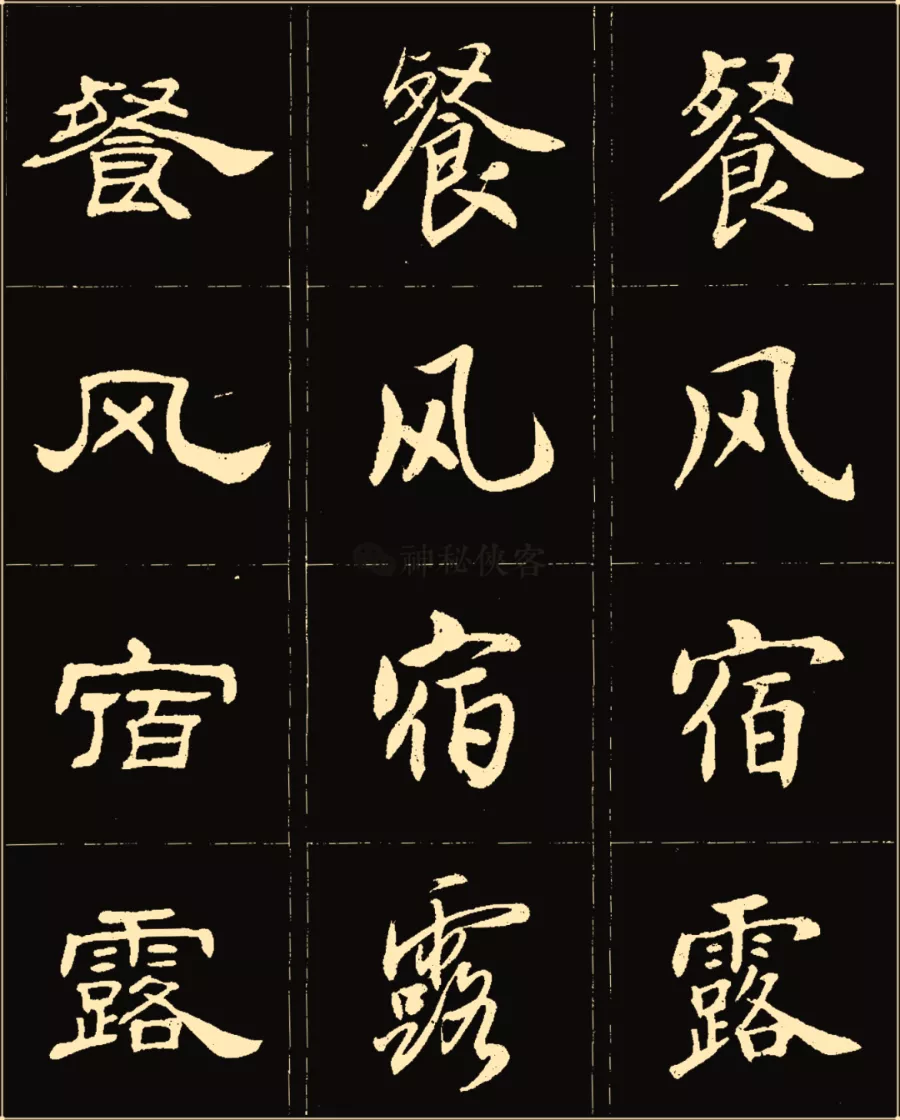 餐 餐 餐
风 风 风
神秘侠客
宿 宿 宿
露 露 露